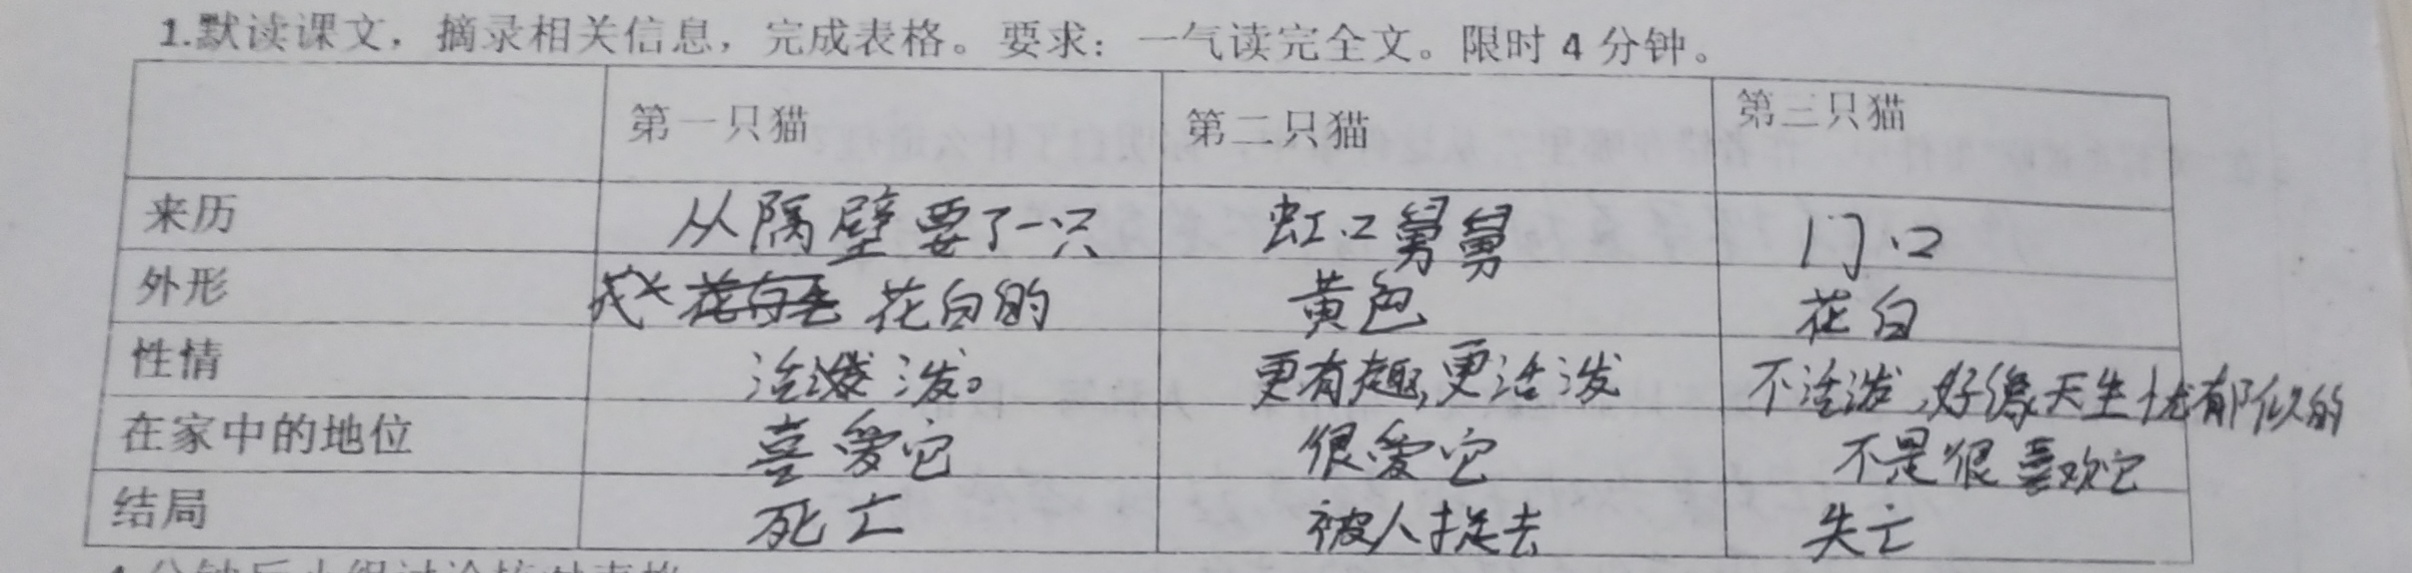 1.默读课文，摘录相关信息，完成表格。要求：一气读完全文。限时 4 分钟。
第一只猫 第二只猫 第三只猫
来历 从隔壁要了一只 虹口舅舅 门口
外形 花白的 黄色 花白
性情 活泼。 更有趣,更活泼 不活泼,好像天生忧郁似的
在家中的地位 喜爱它 很爱它 不是很喜欢它
结局 死亡 被人捉去 失亡